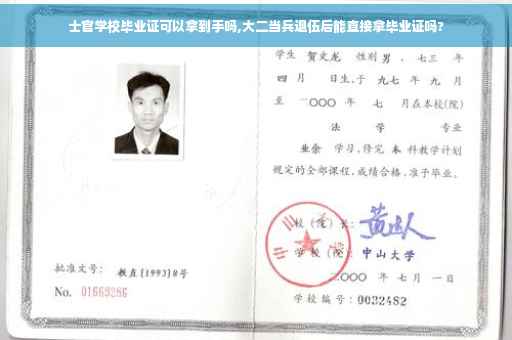 士官学校毕业证可以拿到手吗,大二当兵退伍后能直接拿毕业证吗?
学生 贺文龙 性别 男 、七三 年
四 月 日生,于 九七 年 九 月
至 二〇〇〇 年 七 月在本校(院)
法 学 专业
业余 学习,修完 本 科教学计划
规定的全部课程,成绩合格,准予毕业。
校(院)长:
学 校(院): 中山大学
二〇〇〇 年 七 月 一 日
批准文号: 教直[1993]8号
No. 01669286
学校编号: 0032482